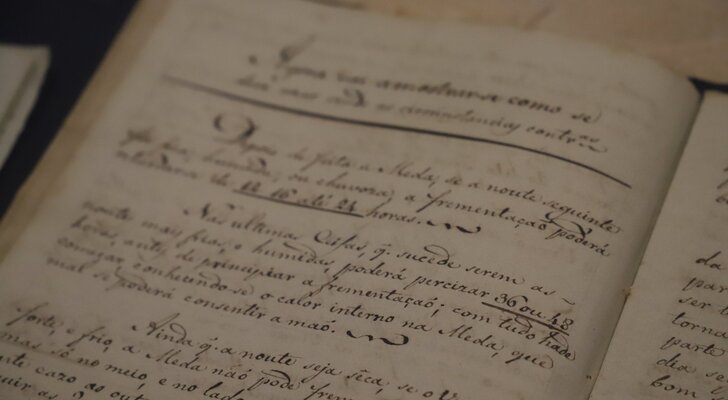 Agora vai amostrar-se como se
as circunstancias contr.as
Depois de feita a Meda, se a noute seguinte
for fria, humida, ou chuvoza, a frementação poderá
retardar-se de 12, 16 até 24 horas.
Nas ultimas Ceifas, q. sucede serem as
noutes mais frias, e humidas, poderá percizar 36 ou 48
horas, antes de principiar a frementação; com tudo hade
começar, conhecendo-se o calor interno na Meda, que
mal se poderá consentir a mão.
Ainda q. a noute seja sêca, se o
forte, e frio, a Meda não pode
mas só no meio, e no
cazo
da
par
ser t
torna
parte
dia se
bom